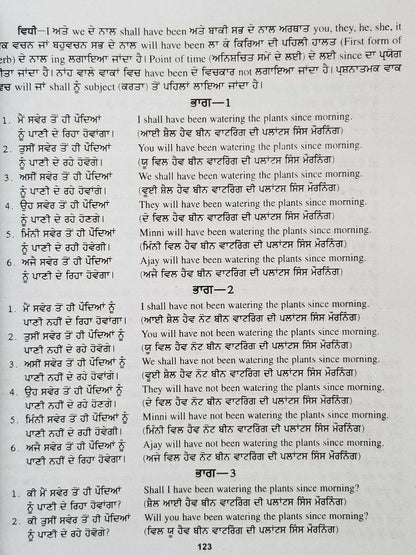 ਵਿਧੀ—I ਅਤੇ we ਦੇ ਨਾਲ shall have been ਅਤੇ ਬਾਕੀ ਸਭ ਦੇ ਨਾਲ ਅਰਥਾਤ you, they, he, she, it
ਕ ਵਚਨ ਜਾਂ ਬਹੁਵਚਨ ਸਭ ਦੇ ਨਾਲ will have been ਲਾ ਕੇ ਕਿਰਿਆ ਦੀ ਪਹਿਲੀ ਹਾਲਤ (First form of
erb) ਦੇ ਨਾਲ ing ਲਗਾਇਆ ਜਾਂਦਾ ਹੈ। Point of time (ਅਨਿਸ਼ਚਿਤ ਸਮੇਂ ਦੇ ਲਈ) ਦੇ ਲਈ since ਦਾ ਪ੍ਰਯੋਗ
ੀਤਾ ਜਾਂਦਾ ਹੈ। ਨਾਂਹ ਵਾਲੇ ਵਾਕਾਂ ਵਿਚ have been ਦੇ ਵਿਚਕਾਰ not ਲਗਾਇਆ ਜਾਂਦਾ ਹੈ। ਪ੍ਰਸ਼ਨਾਤਮਕ ਵਾਕ
ਵਚ will ਜਾਂ shall ਨੂੰ subject (ਕਰਤਾ) ਤੋਂ ਪਹਿਲਾਂ ਲਾਇਆ ਜਾਂਦਾ ਹੈ।
ਭਾਗ—1
1. ਮੈਂ ਸਵੇਰ ਤੋਂ ਹੀ ਪੌਦਿਆਂ I shall have been watering the plants since morning.
ਨੂੰ ਪਾਣੀ ਦੇ ਰਿਹਾ ਹੋਵਾਂਗਾ। (ਆਈ ਸ਼ੈਲ ਹੈਵ ਬੀਨ ਵਾਟਰਿੰਗ ਦੀ ਪਲਾਂਟਸ ਸਿੰਸ ਮੌਰਨਿੰਗ)
2. ਤੁਸੀਂ ਸਵੇਰ ਤੋਂ ਹੀ ਪੌਦਿਆਂ You will have been watering the plants since morning.
ਨੂੰ ਪਾਣੀ ਦੇ ਰਹੇ ਹੋਵੋਗੇ। (ਯੂ ਵਿਲ ਹੈਵ ਬੀਨ ਵਾਟਰਿੰਗ ਦੀ ਪਲਾਂਟਸ ਸਿੰਸ ਮੌਰਨਿੰਗ)
3. ਅਸੀਂ ਸਵੇਰ ਤੋਂ ਹੀ ਪੌਦਿਆਂ We shall have been watering the plants since morning.
ਨੂੰ ਪਾਣੀ ਦੇ ਰਹੇ ਹੋਵਾਂਗੇ। (ਵੂਈ ਸ਼ੈਲ ਹੈਵ ਬੀਨ ਵਾਟਰਿੰਗ ਦੀ ਪਲਾਂਟਸ ਸਿੰਸ ਮੌਰਨਿੰਗ)
4. ਉਹ ਸਵੇਰ ਤੋਂ ਹੀ ਪੌਦਿਆਂ They will have been watering the plants since morning.
ਨੂੰ ਪਾਣੀ ਦੇ ਰਹੇ ਹੋਣਗੇ। (ਦੇ ਵਿਲ ਹੈਵ ਬੀਨ ਵਾਟਰਿੰਗ ਦੀ ਪਲਾਂਟਸ ਸਿੰਸ ਮੌਰਨਿੰਗ)
5. ਮਿੰਨੀ ਸਵੇਰ ਤੋਂ ਹੀ ਪੌਦਿਆਂ Minni will have been watering the plants since morning.
ਨੂੰ ਪਾਣੀ ਦੇ ਰਹੀ ਹੋਵੇਗੀ। (ਮਿੰਨੀ ਵਿਲ ਹੈਵ ਬੀਨ ਵਾਟਰਿੰਗ ਦੀ ਪਲਾਂਟਸ ਸਿੰਸ ਮੌਰਨਿੰਗ)
6. ਅਜੇ ਸਵੇਰ ਤੋਂ ਹੀ ਪੌਦਿਆਂ Ajay will have been watering the plants since morning.
ਨੂੰ ਪਾਣੀ ਦੇ ਰਿਹਾ ਹੋਵੇਗਾ। (ਅਜੇ ਵਿਲ ਹੈਵ ਬੀਨ ਵਾਟਰਿੰਗ ਦੀ ਪਲਾਂਟਸ ਸਿੰਸ ਮੌਰਨਿੰਗ)
ਭਾਗ—2
1. ਮੈਂ ਸਵੇਰ ਤੋਂ ਹੀ ਪੌਦਿਆਂ ਨੂੰ I shall have not been watering the plants since morning.
ਪਾਣੀ ਨਹੀਂ ਦੇ ਰਿਹਾ ਹੋਵਾਂਗਾ। (ਆਈ ਸ਼ੈਲ ਹੈਵ ਨੌਟ ਬੀਨ ਵਾਟਰਿੰਗ ਦੀ ਪਲਾਂਟਸ ਸਿੰਸ ਮੌਰਨਿੰਗ)
2. ਤੁਸੀਂ ਸਵੇਰ ਤੋਂ ਹੀ ਪੌਦਿਆਂ ਨੂੰ You will have not been watering the plants since morning.
ਪਾਣੀ ਨਹੀਂ ਦੇ ਰਹੇ ਹੋਵੋਗੇ। (ਯੂ ਵਿਲ ਹੈਵ ਨੌਟ ਬੀਨ ਵਾਟਰਿੰਗ ਦੀ ਪਲਾਂਟਸ ਸਿੰਸ ਮੌਰਨਿੰਗ)
3. ਅਸੀਂ ਸਵੇਰ ਤੋਂ ਹੀ ਪੌਦਿਆਂ ਨੂੰ We shall have not been watering the plants since morning.
ਪਾਣੀ ਨਹੀਂ ਦੇ ਰਹੇ ਹੋਵਾਂਗੇ। (ਵੂਈ ਸ਼ੈਲ ਹੈਵ ਨੌਟ ਬੀਨ ਵਾਟਰਿੰਗ ਦੀ ਪਲਾਂਟਸ ਸਿੰਸ ਮੌਰਨਿੰਗ)
4. ਉਹ ਸਵੇਰ ਤੋਂ ਹੀ ਪੌਦਿਆਂ ਨੂੰ They will have not been watering the plants since morning.
ਪਾਣੀ ਨਹੀਂ ਦੇ ਰਹੇ ਹੋਣਗੇ। (ਦੇ ਵਿਲ ਹੈਵ ਨੌਟ ਬੀਨ ਵਾਟਰਿੰਗ ਦੀ ਪਲਾਂਟਸ ਸਿੰਸ ਮੌਰਨਿੰਗ)
5. ਮਿੰਨੀ ਸਵੇਰ ਤੋਂ ਹੀ ਪੌਦਿਆਂ ਨੂੰ Minni will have not been watering the plants since morning.
ਪਾਣੀ ਨਹੀਂ ਦੇ ਰਹੀ ਹੋਵੇਗੀ। (ਮਿੰਨੀ ਵਿਲ ਹੈਵ ਨੌਟ ਬੀਨ ਵਾਟਰਿੰਗ ਦੀ ਪਲਾਂਟਸ ਸਿੰਸ ਮੌਰਨਿੰਗ)
6. ਅਜੇ ਸਵੇਰ ਤੋਂ ਹੀ ਪੌਦਿਆਂ ਨੂੰ Ajay will have not been watering the plants since morning.
ਪਾਣੀ ਨਹੀਂ ਦੇ ਰਿਹਾ ਹੋਵੇਗਾ। (ਅਜੇ ਵਿਲ ਹੈਵ ਨੌਟ ਬੀਨ ਵਾਟਰਿੰਗ ਦੀ ਪਲਾਂਟਸ ਸਿੰਸ ਮੌਰਨਿੰਗ)
ਭਾਗ—3
1. ਕੀ ਮੈਂ ਸਵੇਰ ਤੋਂ ਹੀ ਪੌਦਿਆਂ Shall I have been watering the plants since morning?
ਨੂੰ ਪਾਣੀ ਦੇ ਰਿਹਾ ਹੋਵਾਂਗਾ? (ਸ਼ੈਲ ਆਈ ਹੈਵ ਬੀਨ ਵਾਟਰਿੰਗ ਦੀ ਪਲਾਂਟਸ ਸਿੰਸ ਮੌਰਨਿੰਗ)
2. ਕੀ ਤੁਸੀਂ ਸਵੇਰ ਤੋਂ ਹੀ ਪੌਦਿਆਂ Will you have been watering the plants since morning?
ਨੂੰ ਪਾਣੀ ਦੇ ਰਹੇ ਹੋਵੋਗੇ? (ਵਿਲ ਯੂ ਹੈਵ ਬੀਨ ਵਾਟਰਿੰਗ ਦੀ ਪਲਾਂਟਸ ਸਿੰਸ ਮੌਰਨਿੰਗ)
123